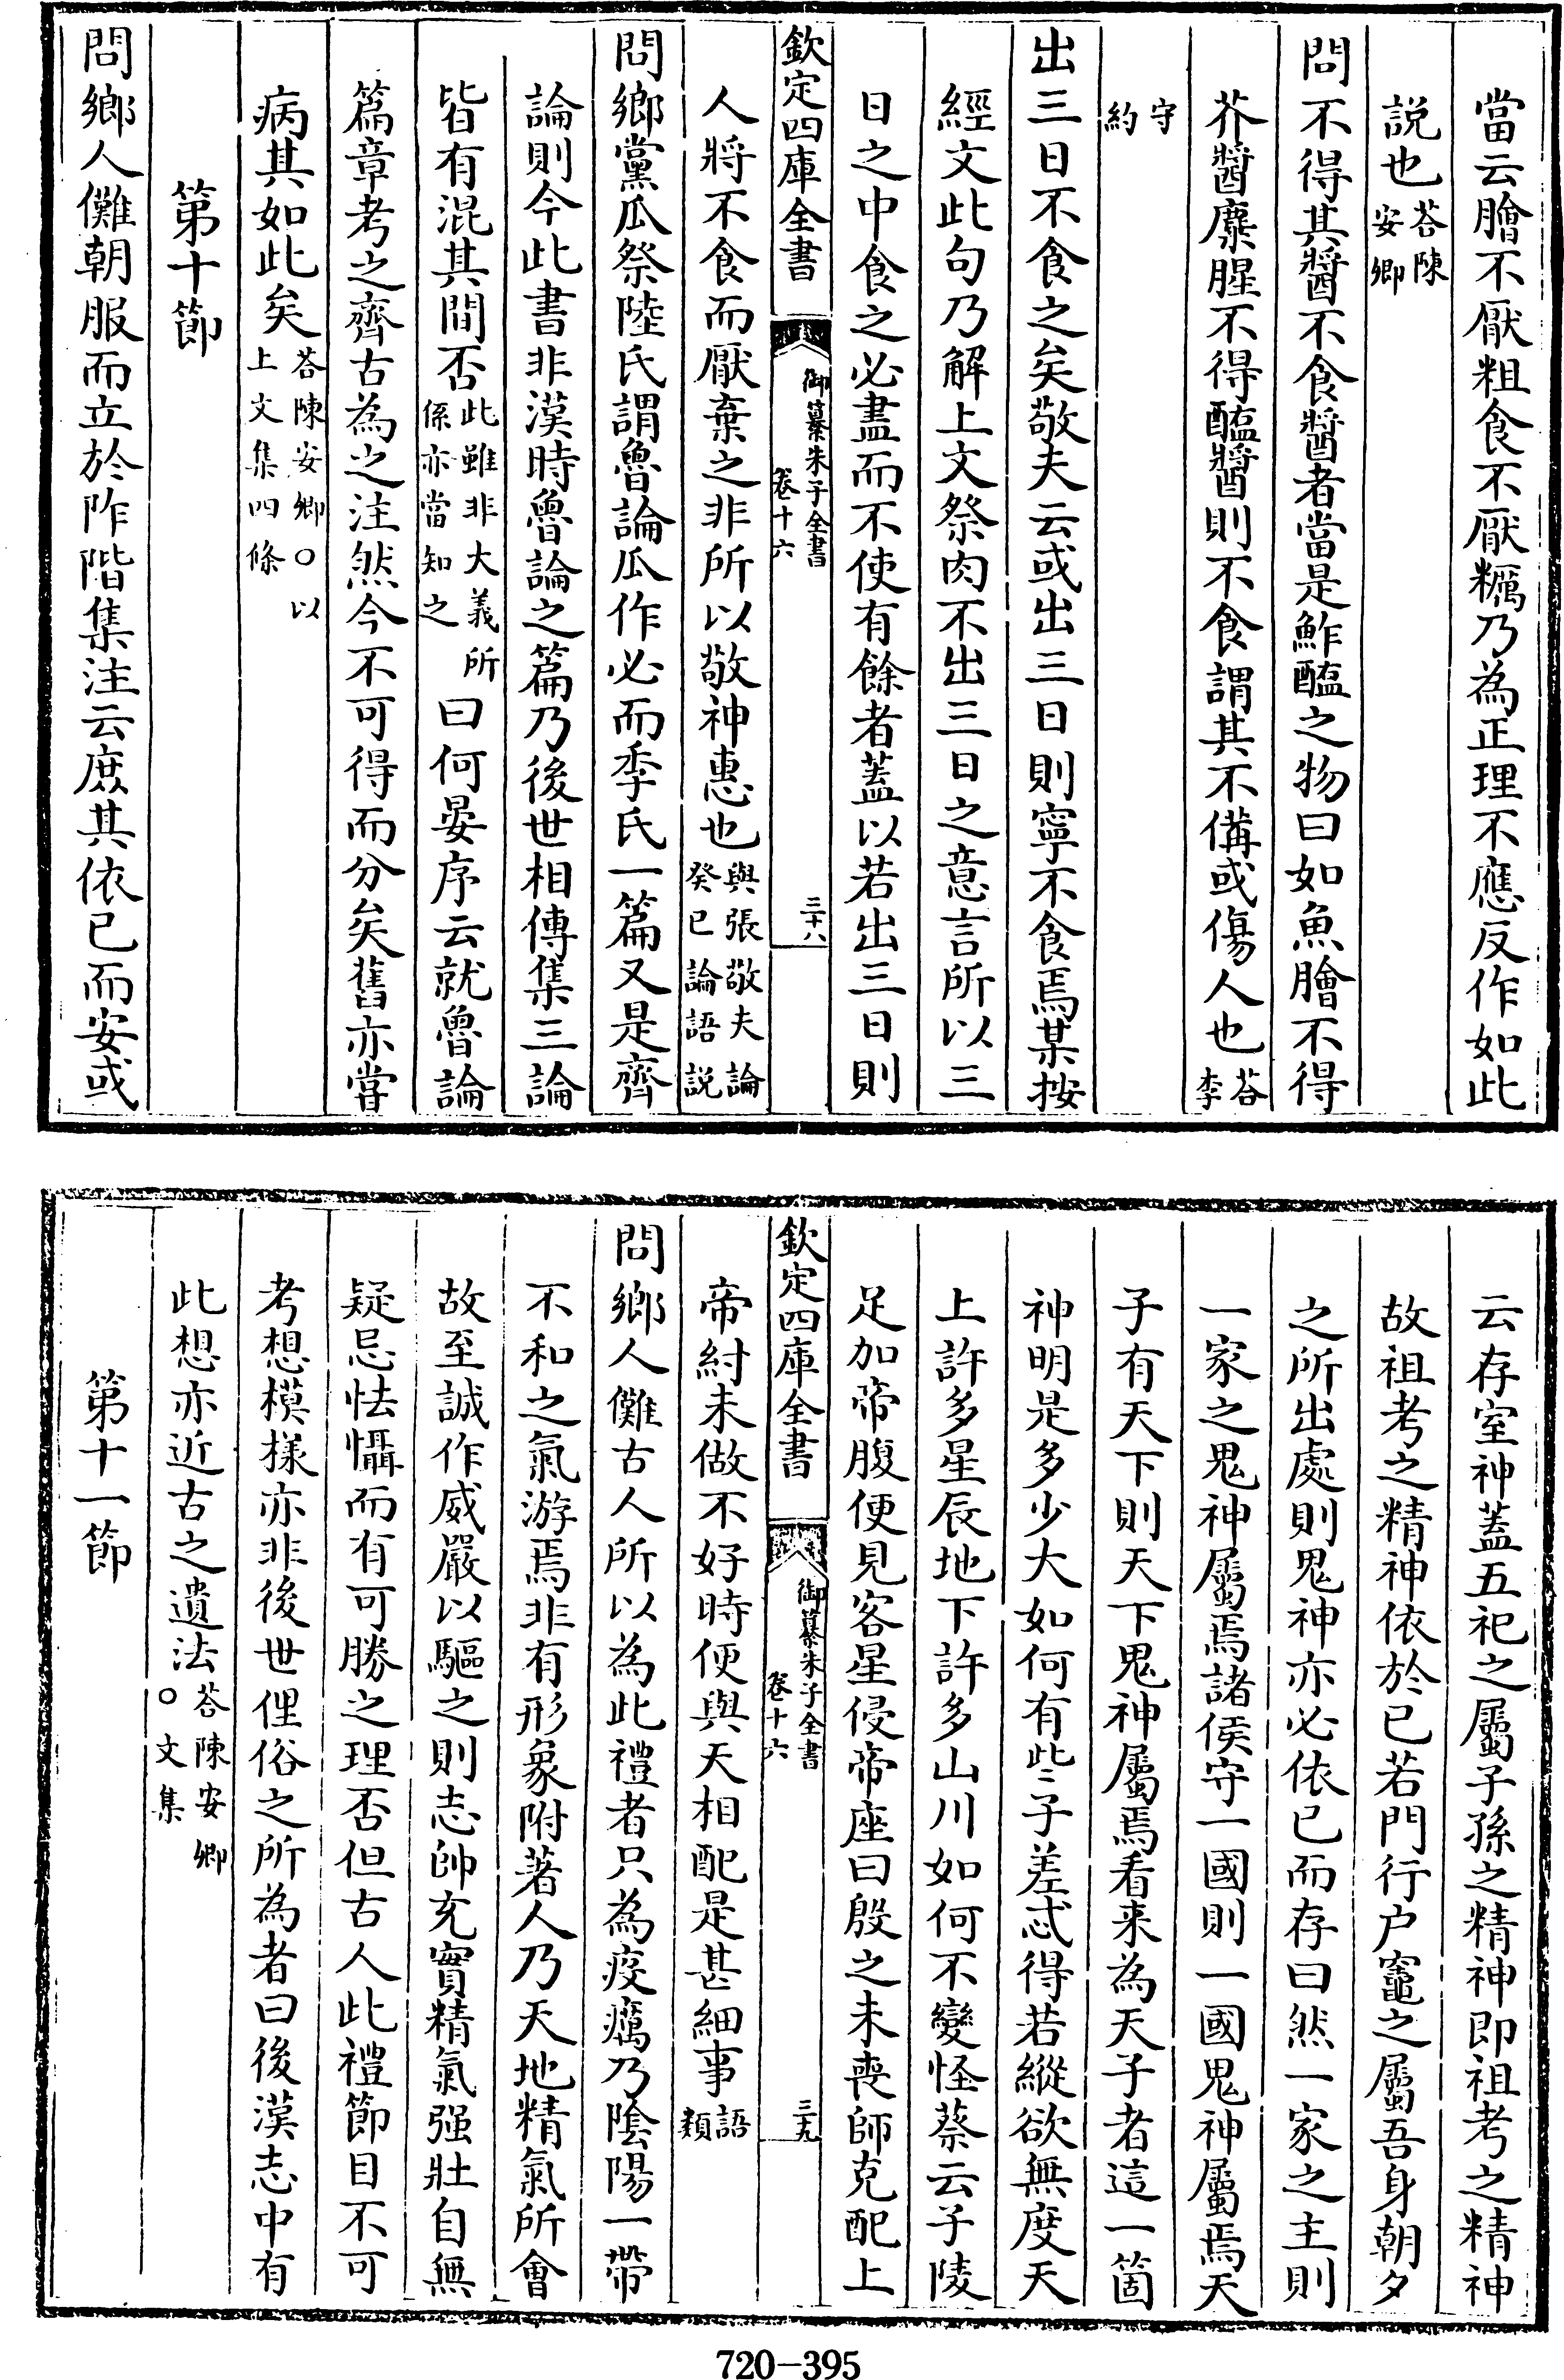 當云膾不厭粗食不厭糲乃為正理不應反作如此
說也荅陳安卿
問不得其醬不食醬者當是鮓醢之物曰如魚膾不得
芥醬麋腥不得醢醬則不食謂其不備或傷人也荅李
守約
出三日不食之矣敬夫云或出三日則寧不食焉某按
經文此句乃解上文祭肉不出三日之意言所以三
日之中食之必盡而不使有餘者蓋以若出三日則
欽定四庫全書 御纂朱子全書 卷十六 三十八
人將不食而厭棄之非所以敬神惠也與張敬夫論癸巳論語說
問鄉黨瓜祭陸氏謂魯論瓜作必而季氏一篇又是齊
論則今此書非漢時魯論之篇乃後世相傳集三論
皆有混其間否此雖非大義所係亦當知之曰何晏序云就魯論
篇章考之齊古為之注然今不可得而分矣舊亦嘗
病其如此矣荅陳安卿○以上文集四條
第十節
問鄉人儺朝服而立於阼階集注云庶其依已而安或
云存室神蓋五祀之屬子孫之精神即祖考之精神
故祖考之精神依於已若門行户竈之屬吾身朝夕
之所出處則鬼神亦必依已而存曰然一家之主則
一家之鬼神屬焉諸侯守一國則一國鬼神屬焉天
子有天下則天下鬼神屬焉看来為天子者這一箇
神明是多少大如何有些子差忒得若縱欲無度天
上許多星辰地下許多山川如何不變怪蔡云子陵
足加帝腹便見客星侵帝座曰殷之未喪師克配上
欽定四庫全書 御纂朱子全書 卷十六 三十九
帝紂未做不好時便與天相配是甚細事語類
問鄉人儺古人所以為此禮者只為疫癘乃陰陽一帶
不和之氣游焉非有形象附著人乃天地精氣所會
故至誠作威嚴以驅之則志帥充實精氣强壯自無
疑忌怯懾而有可勝之理否但古人此禮節目不可
考想模樣亦非後世俚俗之所為者曰後漢志中有
此想亦近古之遺法荅陳安卿○文集
第十一節
720-395